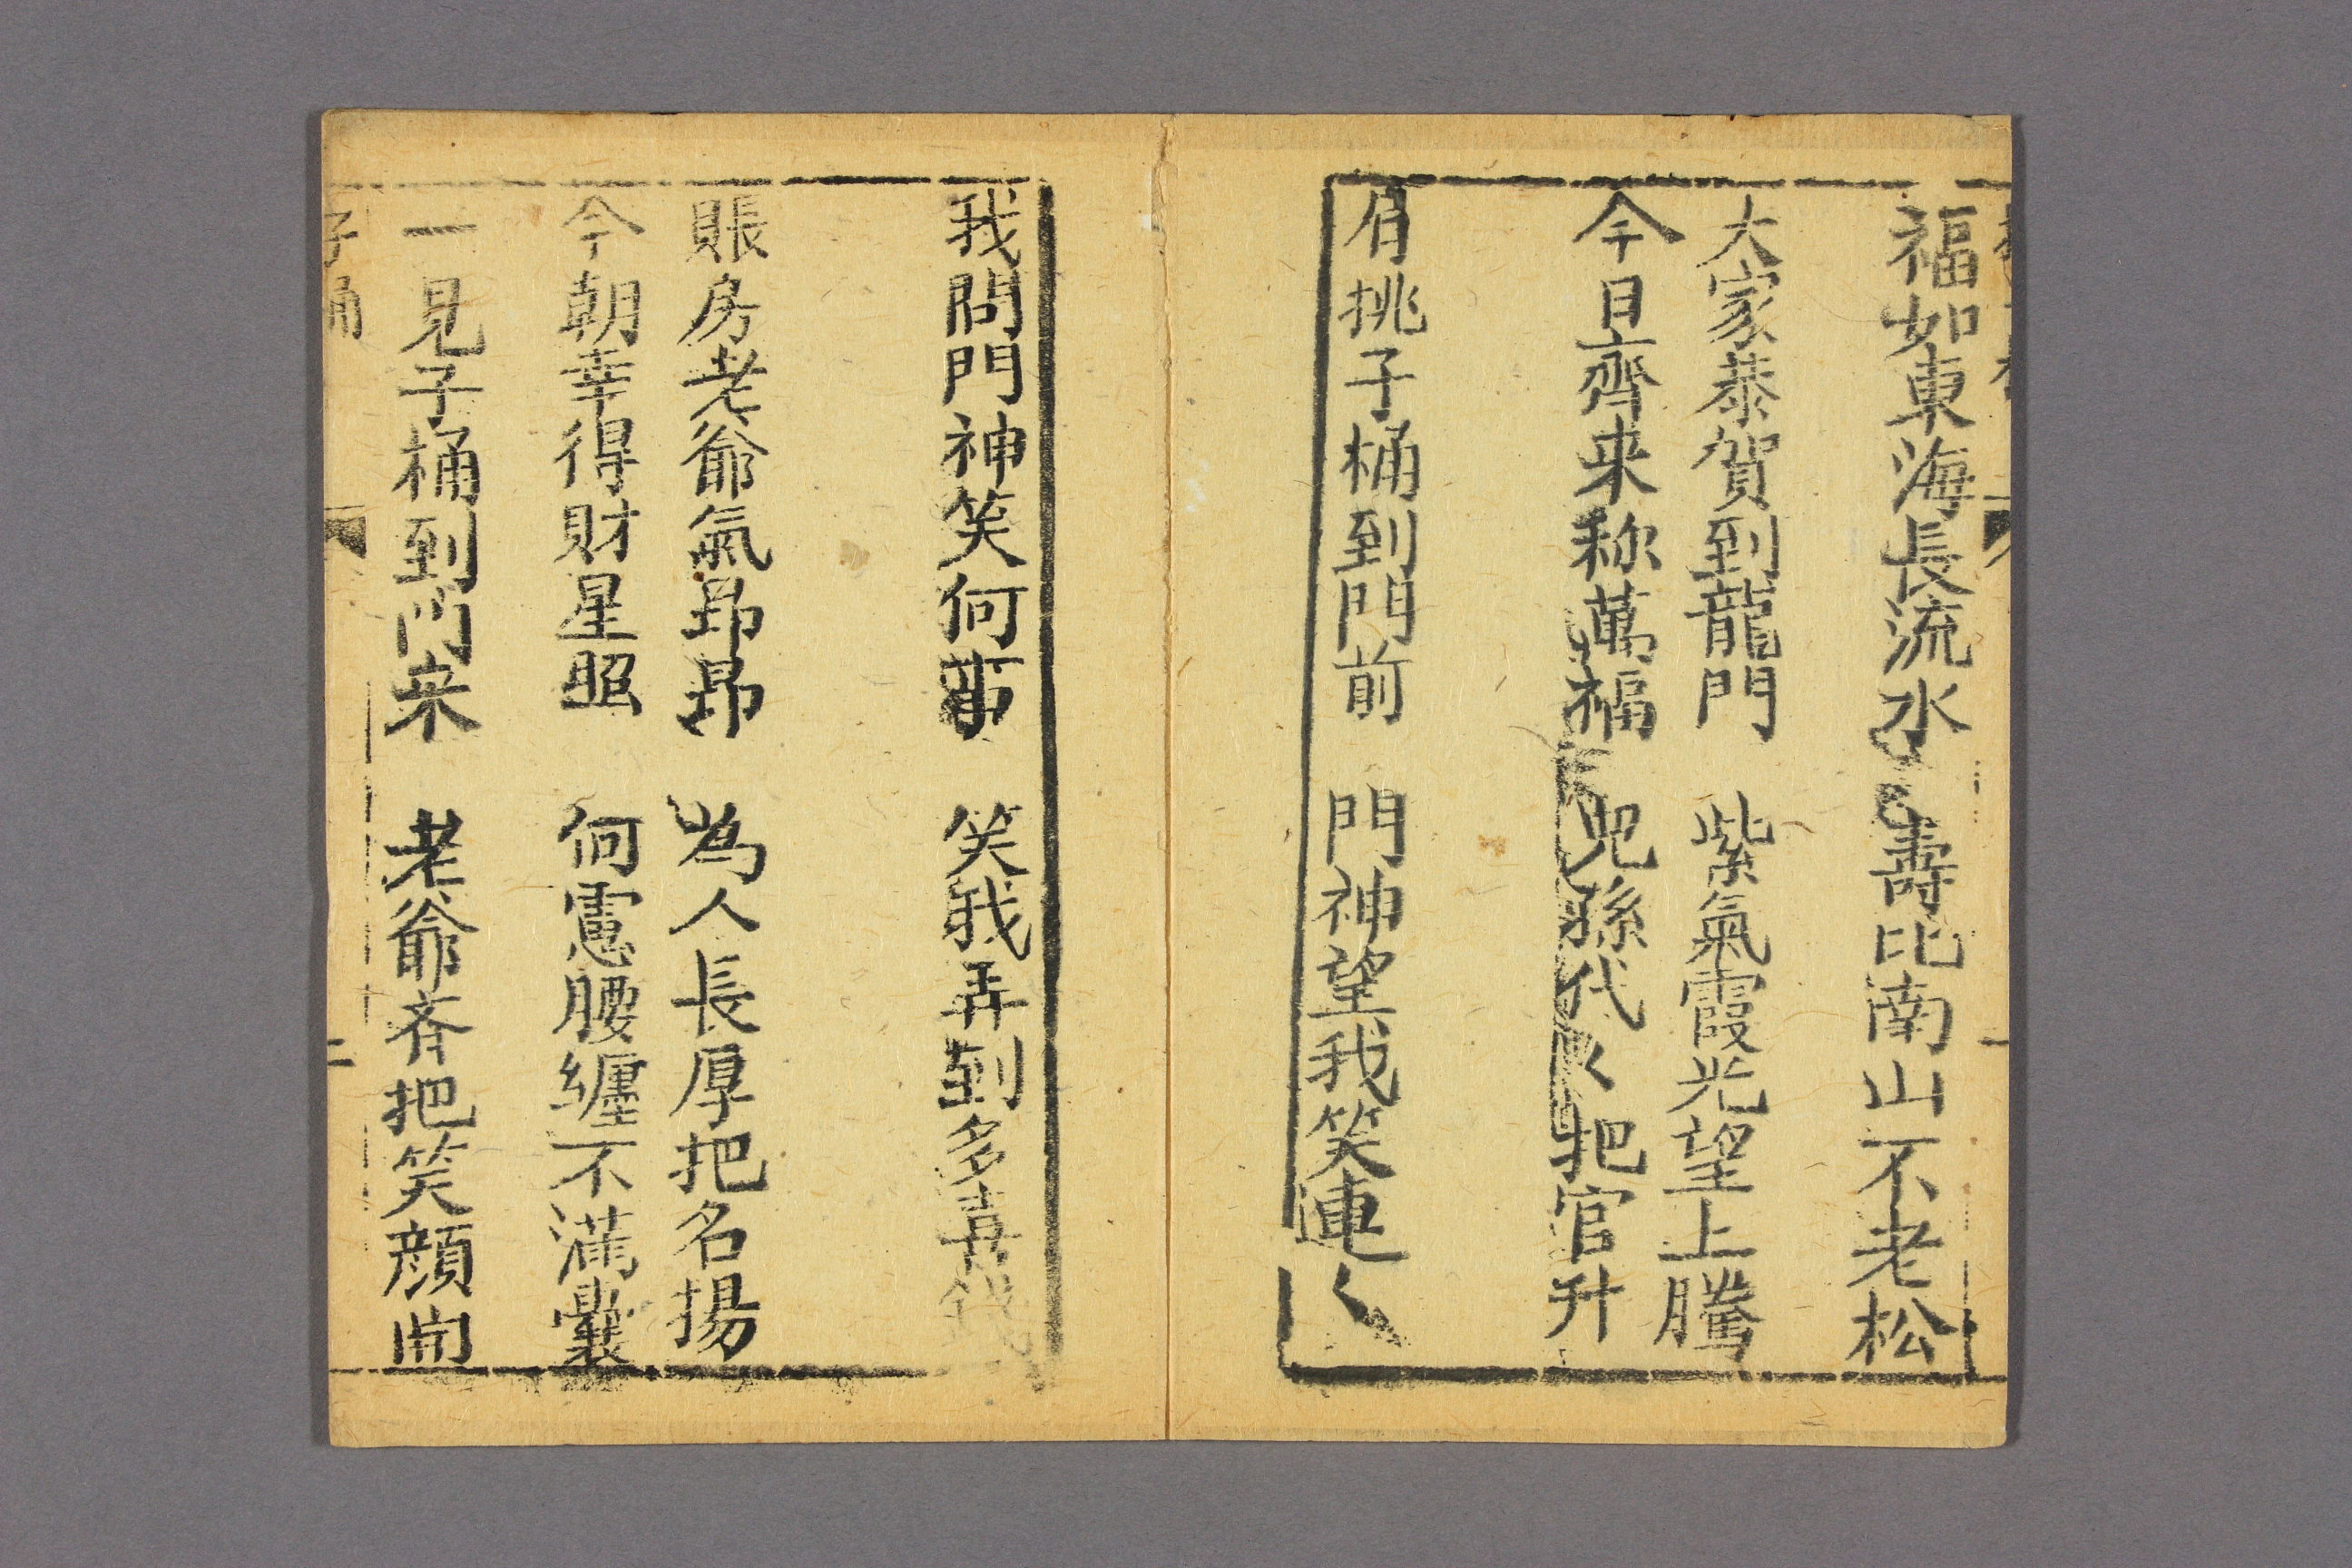 福如東海長流水　壽比南山不老松
大家恭賀到龍門　紫氣霞光望上騰
今日齊来称萬福　兒孫代〱把官升
有挑子桶到門前　門神望我笑連〱
我問門神笑何事　笑我弄到多喜錢
賬房老爺氣昂昂　為人長厚把名揚
今朝幸得財星照　何慮腰纏不满囊
一見子桶到门来　老爺齐把笑顔開
子桶
二